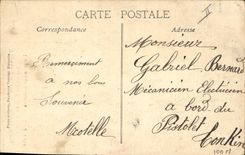 CARTE POSTALE
Correspondance
Adresse
Monsieur
Gabriel Bernard
Mécanicien Electricien
a bord du
Pistolet
Tonkin
Remerciement
a nos bons
Souvenir